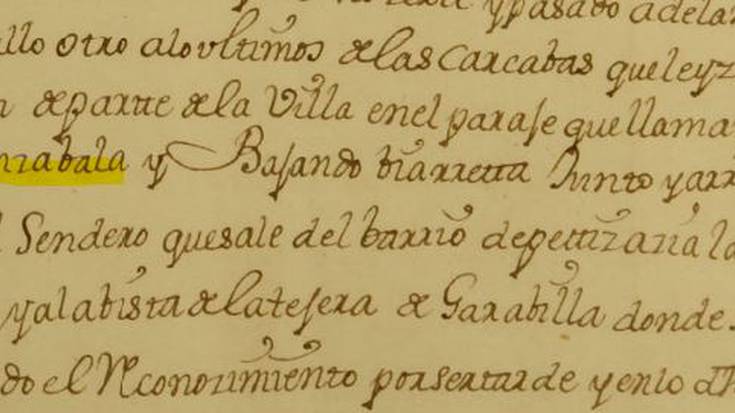 y pasado adela
llo otro alo vltimos de las Carcabas que leyz
n de partte de la Villa en el paraje que llama
nzabala y Bajando bianrretta Junto y arr
l Sendero que sale del barrio de pettiz aria la
y a la bista de la tejera de Garabilla donde
do el Rconozimiento por ser tarde y en lo d